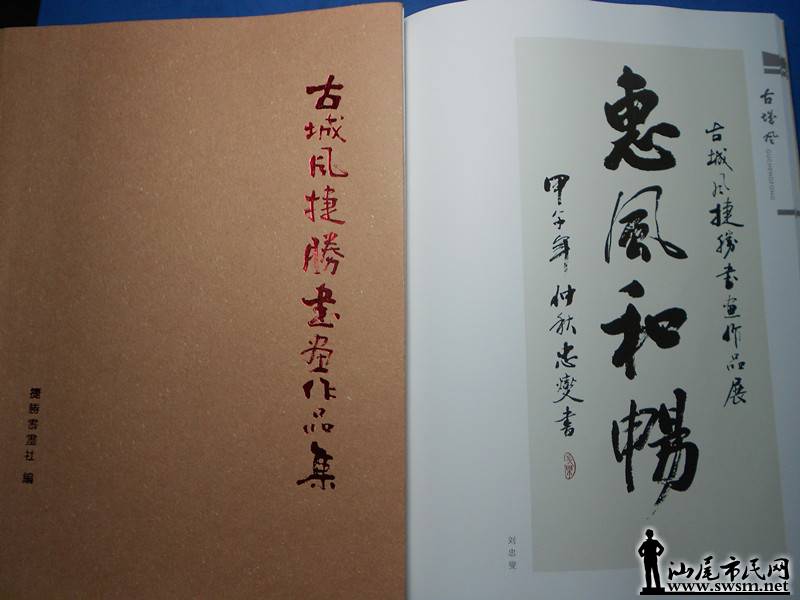 古城风捷勝书画作品集
捷勝书画社 编
古城风
古城风捷勝书画作品展
惠風和暢
甲午年仲秋忠燮书
刘忠燮
汕尾市民网
www.swsm.net